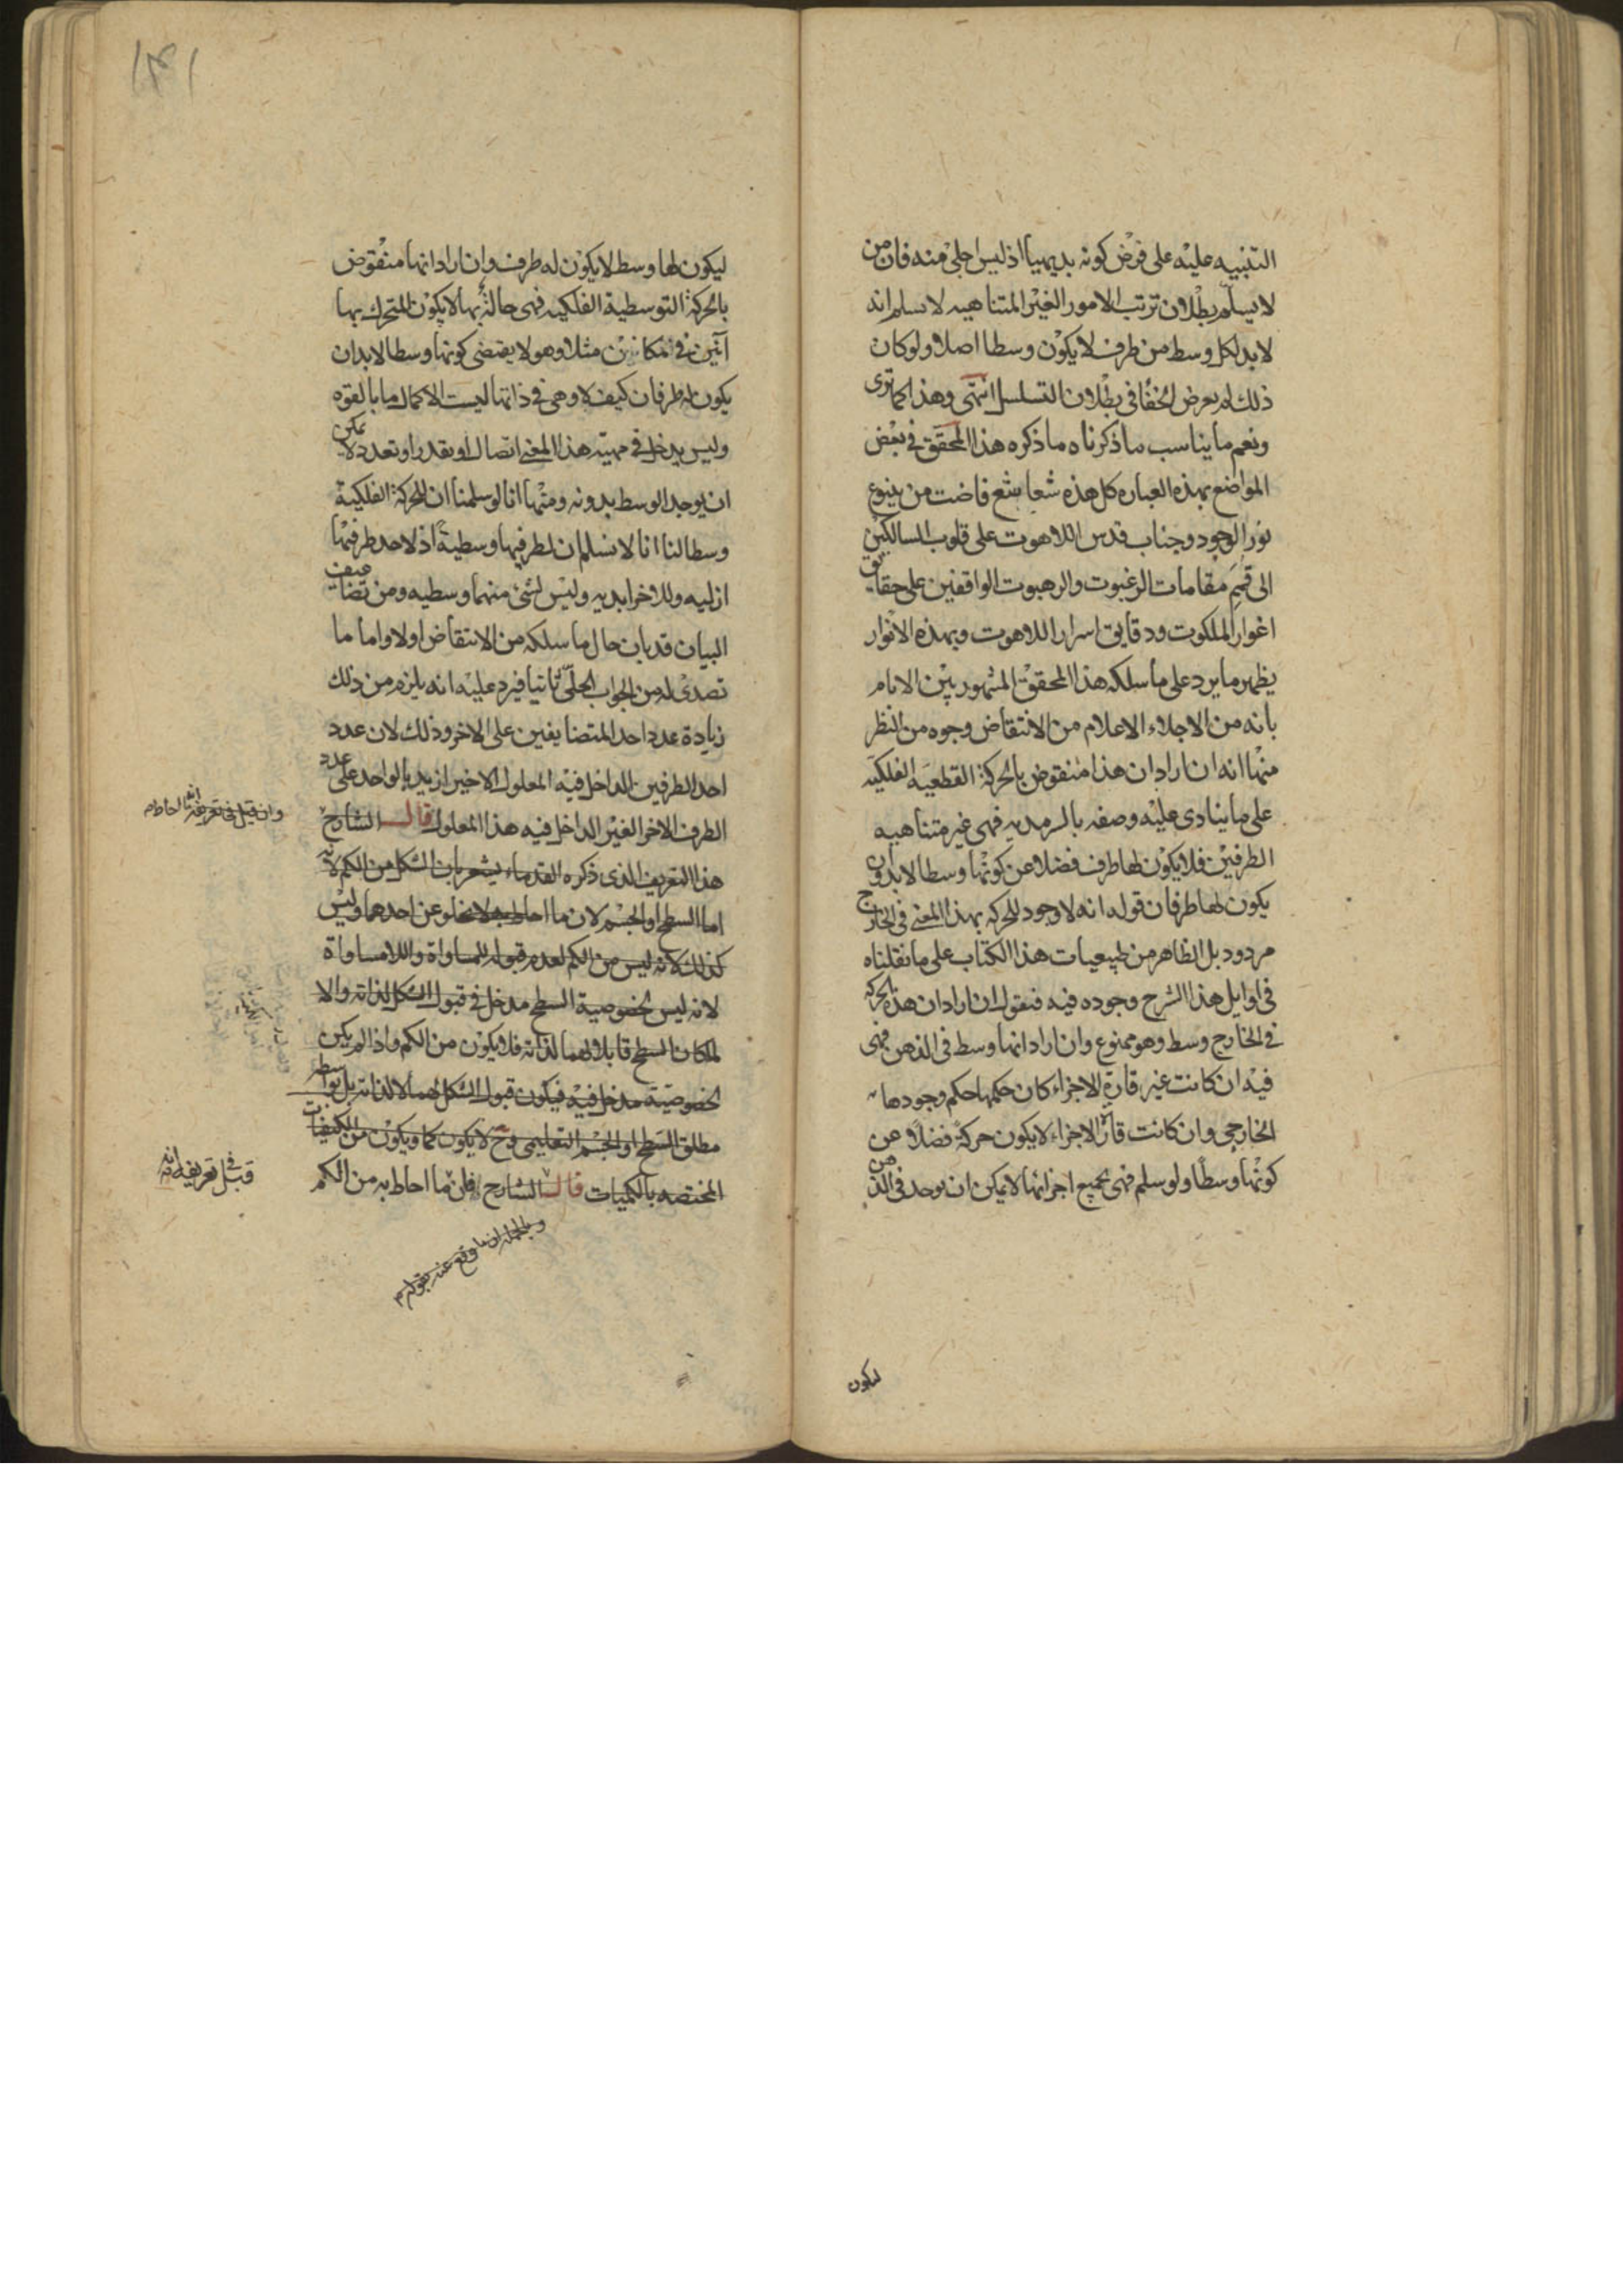 التنبيه عليه على فرض كونه بديهيا اذ ليس اجلى منه فان من
لا يسلم بطلان ترتب الامور الغير المتناهيه لا يسلم انه
لا بد لكل وسط من طرف لا يكون وسطا اصلا ولو كان
ذلك لم يعرض الخفا فى بطلان التسلسل انتهى وهذا كما ترى
ونعم ما يناسب ما ذكرناه ما ذكره هذا المحقق فى بعض
المواضع بهذه العباره كل هذه شعا شع فاضت من ينبوع
نور الوجود وجناب قدس اللاهوت على قلوب السالكين
الى قمم مقامات الرغبوت والرهبوت الواقفين على حقايق
اغوار الملكوت ودقايق اسرار اللاهوت وبهذه الانوار
يظهر ما يرد على ما سلكه هذا المحقق المشهور بين الانام
بانه من الاجلاء الاعلام من الانتقاض وجوه من النظر
منها انه ان اراد ان هذا منقوض بالحركة القطعيه الفلكيه
على ما ينادى عليه وصفه بالسرمديه فهى غير متناهيه
الطرفين فلا يكون لها طرف فضلا عن كونها وسطا لا بد وان
يكون لها طرفان قوله انه لا وجود للحركه بهذا المعنى فى الخارج
مردود بل الظاهر من طبيعيات هذا الكتاب على ما نقلناه
فى اوايل هذا الشرح وجوده فيه فنقول ان اراد ان هذه الحركه
فى الخارج وسط وهو ممنوع وان اراد انها وسط فى الذهن فهى
فيه ان كانت غير قارة الاجزاء كان حكمها حكم وجودها
الخارجى وان كانت قار الاجزاء لا يكون حركة فضلا عن
كونها وسطا ولو سلم فهى بجميع اجزائها لا يمكن ان يوجد فى الذهن
ليكون
ليكون لها وسط لا يكون له طرف وان اراد انها منقوض
بالحركة التوسطية الفلكيه فهى حالة بها لا يكون المتحرك بها
آنين فى مكانين مثلا وهو لا يقتضى كونها وسطا لا بد ان
يكون له طرفان كيف لا وهى فى ذاتها ليست الا كمال ما بالقوه
وليس يدخل فى مهيته هذا المعنى اتصال او تقدر او تعدد لا يمكن
ان يوجد الوسط بدونه ومنها انا لو سلمنا ان للحركة الفلكية
وسطا لنا انا لا نسلم ان لطرفيها وسطية اذ لاحد طرفيها
ازليه وللاخر ابديه وليس لشئ منهما وسطيه ومن تضاعيف
البيان قد بان حال ما سلكه من الانتقاض اولا واما ما
تصدى له من الجواب الحلى ثانيا فيرد عليه انه يلزم من ذلك
زيادة عدد احد المتضايفين على الاخر وذلك لان عدد
احد الطرفين الداخل فيه المعلول الاخير ازيد بالواحد على عدد
الطرف الاخر الغير الداخل فيه هذا المعلول قال الشارح
هذا التعريف الذى ذكره القدماء يشعر بان الشكل من الكم لانه
اما السطح او الجسم لان ما احاط به لا يخلو عن احدهما وليس
كذلك لانه ليس من الكم لعدم قبوله للمساواة واللامساواة
لانه ليس لخصوصية السطح مدخل فى قبول الشكل لذاته والا
لكان السطح قابلا لهما لذاته فلا يكون من الكم واذا لم يكن
لخصوصيته مدخل فيه فيكون قبول الشكل لهما لا لذاته بل بواسطه
مطلق السطح او الجسم التعليمى وح لا يكون كما ويكون من الكيفيات
المختصه بالكميات قال الشارح فان ما احاط به من الكم
قيل فى تعريفه انه